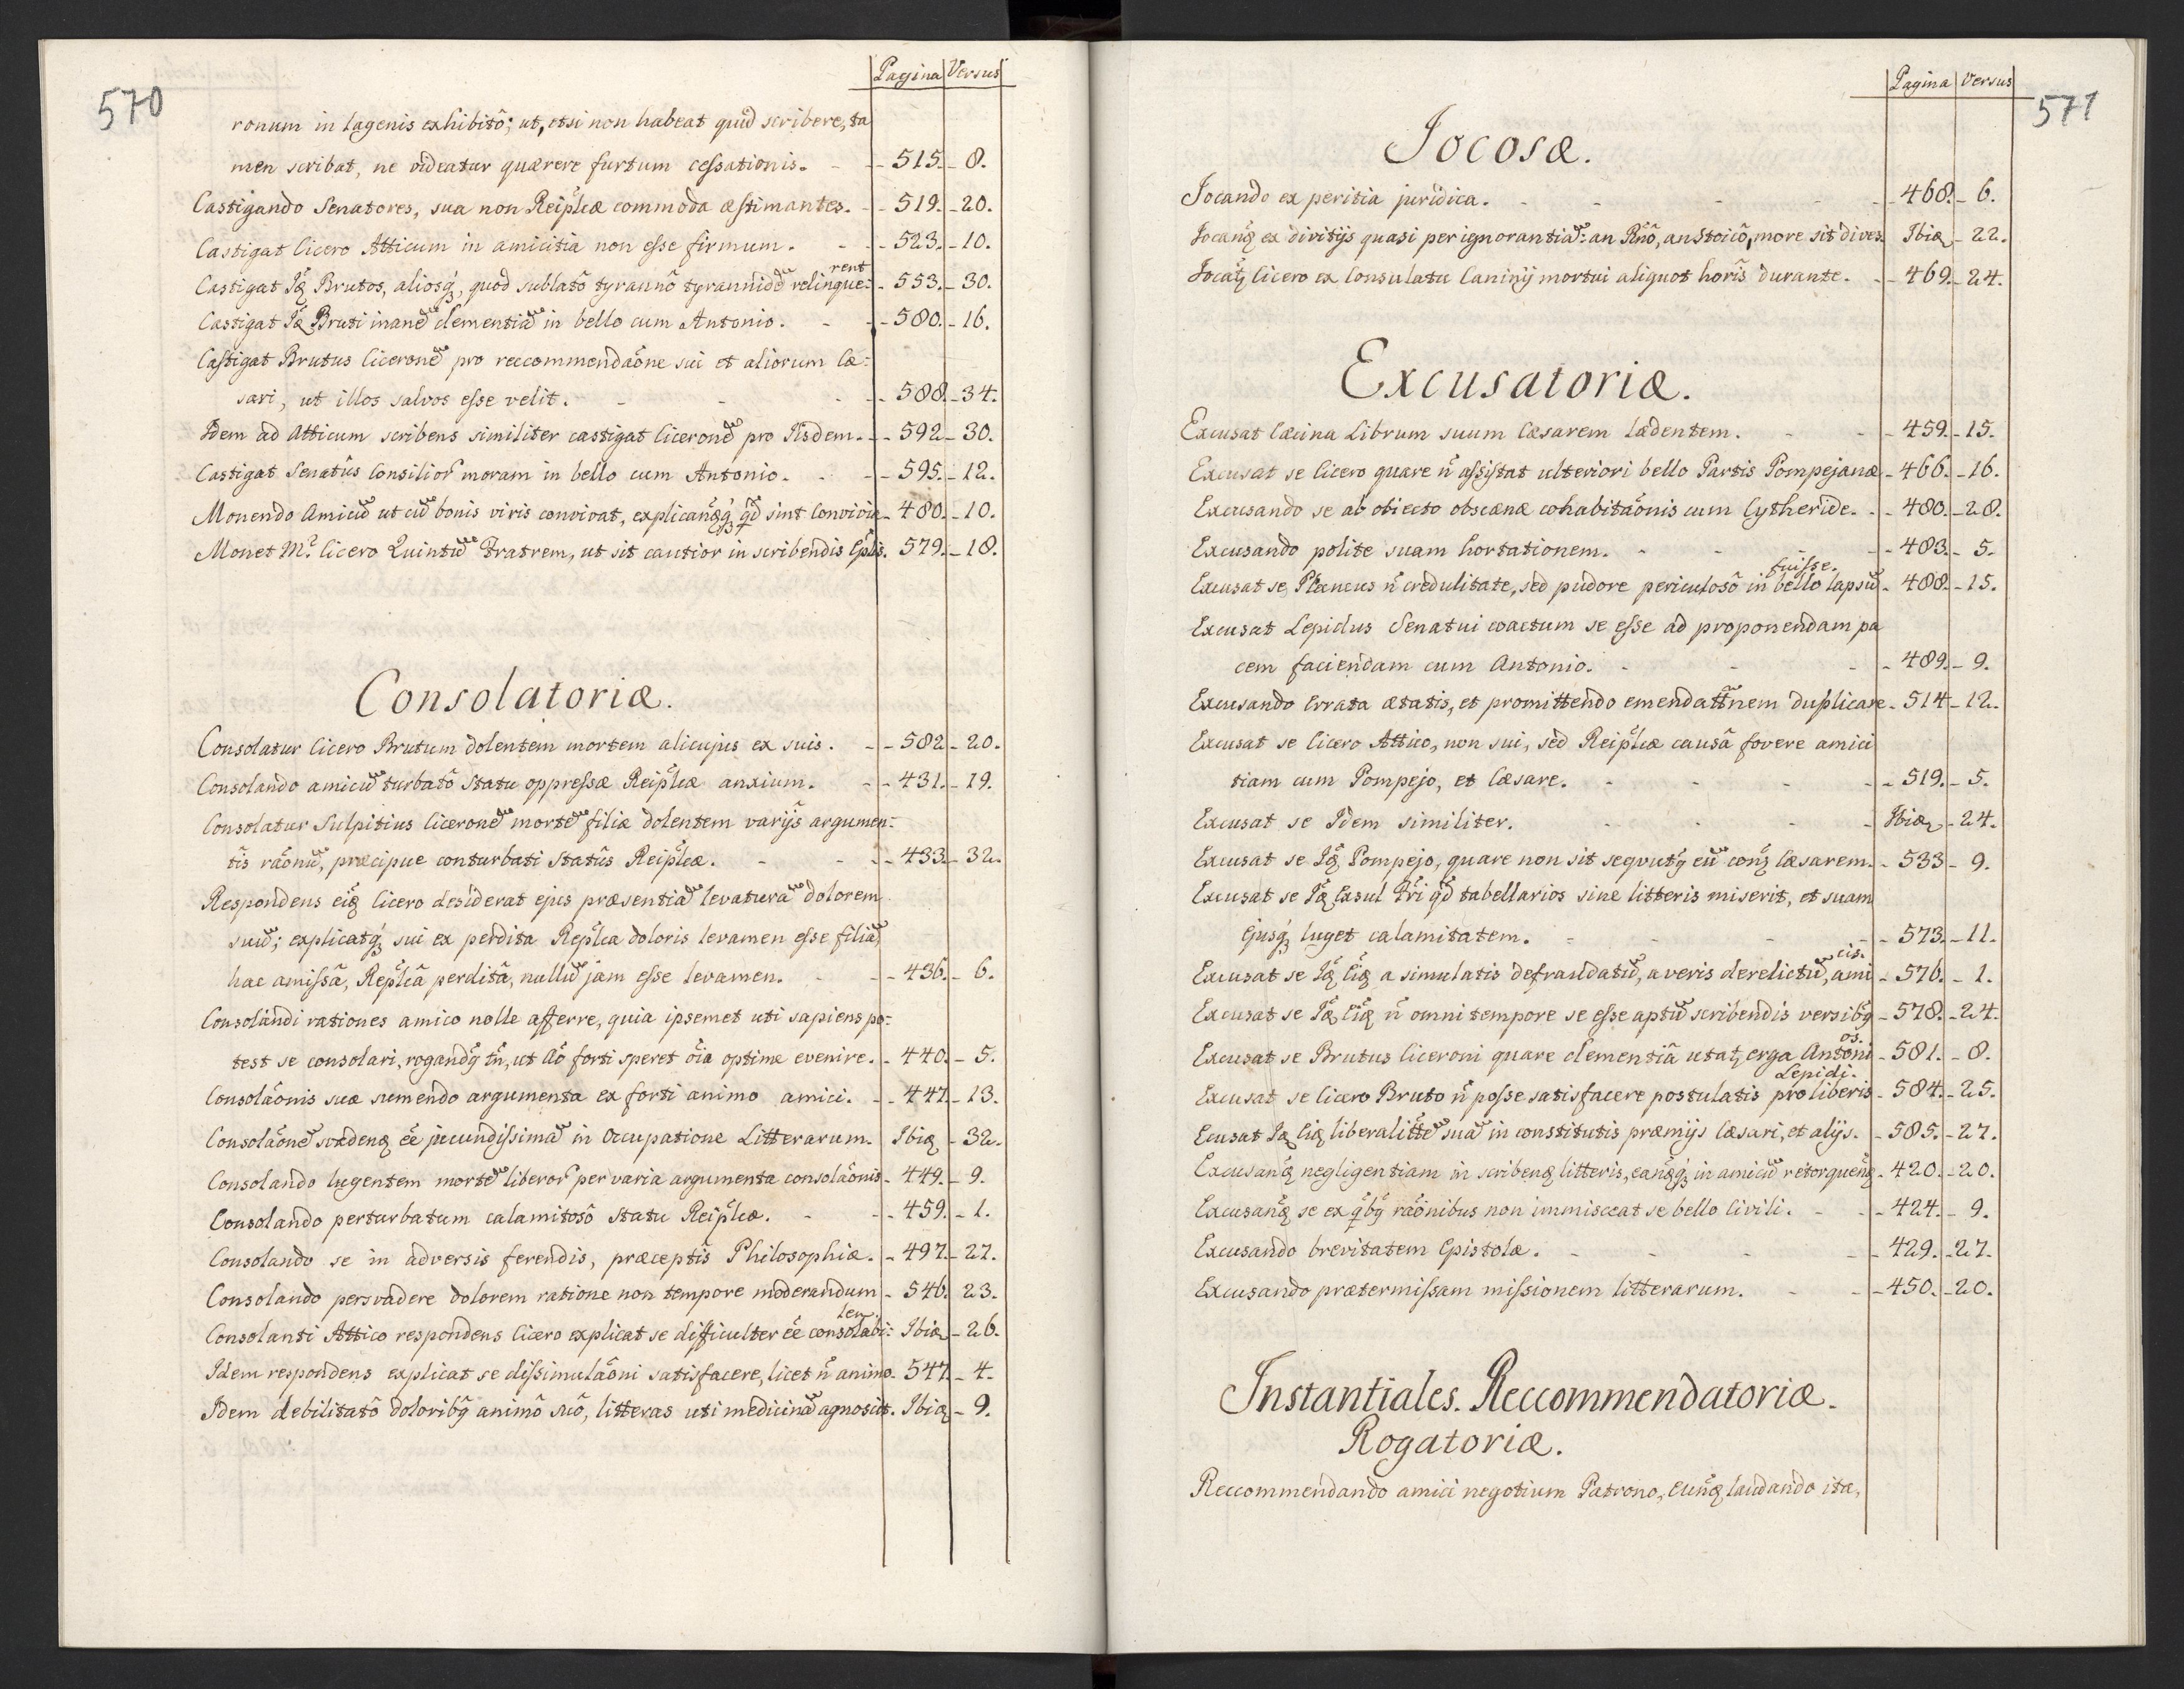 570
Pagina Versus
ronum in lagenis exhibitô; ut, etsi non habeat quid scribere, ta
men scribat, ne videatur quærere furtum cessationis. - - 515. - 8.
Castigando Senatores, sua non Reiplcæ commoda æstimantes. - - 519. - 20.
Castigat Cicero Atticum in amicitia non esse firmum. - - 523. - 10.
rent
Castigat Id Brutos, aliosq, quod sublatô tyrannô tyrannidē relinque: - 553. - 30.
Castigat Id Bruti inanē clementiā in bello cum Antonio. - - 580. - 16.
Castigat Brutus Ciceronē pro reccommendaône sui et aliorum Cæ:
sari, ut illos salvos esse velit. - - - 588. - 34.
Idem ad Atticum scribens similiter castigat Ciceronē pro Iisdem. - - 592 - 30.
Castigat Senatûs Consilior moram in bello cum Antonio. - - 595. - 12.
Monendo Amicū ut cū bonis viris convivat, explicandq qd sint Convivia - 480. - 10.
Monet M. Cicero Quintū Fratrem, ut sit cautior in scribendis Eplis. 579. - 18.
Consolatoriæ.
Consolatur Cicero Brutum dolentem mortem alicujus ex suis. - - 582 - 20.
Consolando amicū turbatô statu oppressæ Reiplcæ anxium. - - 431. - 19.
Consolatur Sulpitius Ciceronē mortē filiæ dolentem varijs argumen:
tis raônū, præcipue conturbati statûs Reiplcæ. - - - 433 - 32.
Respondens eid Cicero desiderat ejus præsentiā levaturā dolorem
suū; explicatq sui ex perdita Replca doloris levamen esse filiā,
hac amissâ, Replcâ perditâ, nullū jam esse levamen. - - 436. - 6.
Consolandi rationes amico nolle afferre, quia ipsemet uti sapiens po:
test se consolari, rogandq tn, ut aô forti speret oia optime evenire. - 440. - 5.
Consolaônis suæ sumendo argumenta ex forti animo amici. - - 447. - 13.
Consolaônē svadend ēe jucundissimā in Occupatione Litterarum. Ibid - 32.
Consolando lugentem mortē liberor per varia argumenta consolaônis - 449. - 9.
Consolando perturbatum calamitosô statu Reiplcæ. - - - 459. - 1.
Consolando se in adversis ferendis, præceptis Philosophiæ. - 497. - 27.
Consolando persvadere dolorem ratione non tempore moderandum - 546. 23.
lem
Consolanti Attico respondens Cicero explicat se difficulter ēe consolabi: Ibid - 26.
Idem respondens explicat se dissimulaôni satisfacere, licet n animo. 547. - 4.
Idem debilitatô doloribq animô suô, litteras uti medicinā agnoscit. Ibid - 9.
571
Pagina Versus
Jocosæ.
Jocando ex peritia juridica. - - - - - 468. - 6.
Jocand ex divitijs quasi per ignorantiā: an Rnô, an Stoicô, more sit dives. Ibid - 22.
Jocat Cicero ex Consulatu Caninij mortui aliquot horis durante. - - 469. - 24.
Excusatoriæ.
Excusat Cæcina Librum suum Cæsarem lædentem. - - - 459. - 15.
Excusat se Cicero quare n assistat ulteriori bello Partis Pompejanæ - 466. - 16.
Excusando se ab obiecto obscænæ cohabitaônis cum Cytheride. - - 480. - 28.
Excusando polite suam hortationem. - - - - 483. - 5.
fuisse.
Excusat se Plancus n credulitate, sed pudore periculosô in bello lapsū - 488. - 15.
Excusat Lepidus Senatui coactum se esse ad proponendam pa
cem faciendam cum Antonio. - - - - 489. - 9.
Excusando Errata ætatis, et promittendo emendatnem duplicare - 514 - 12.
Excusat se Cicero Attico, non sui, sed Reiplcæ causâ fovere amici
tiam cum Pompejo, et Cæsare. - - - - - 519. - 5.
Excusat se Idem similiter. - - - - Ibid - 24.
Excusat se Id Pompejo, quare non sit seqvutq eū con Cæsarem. - 533 - 9.
Excusat se Id Exsul Fri qd tabellarios sine litteris miserit, et suam
Ejusq luget calamitatem. - - - - - 573. - 11.
cis.
Excusat se Id Eid a simulatis defraudatū, a veris derelictū, ami - 576. - 1.
Excusat se Id Eid n omni tempore se esse aptū scribendis versibq - 578. - 24.
os.
Excusat se Brutus Ciceroni quare clementiâ utat erga Antoni - 581. - 8.
Lepidi.
Excusat se Cicero Bruto n posse satisfacere postulatis pro liberis - 584. - 25.
Ecusat Id Eid liberalittē suā in constitutis præmijs Cæsari, et alijs. - 585. - 27.
Excusand negligentiam in scribend litteris, eandq in amicū retorquend - 420. - 20.
Excusand se ex qbq raônibus non immisceat se bello Civili. - - - 424. - 9.
Excusando brevitatem Epistolæ. - - - - - 429. - 27.
Excusando prætermissam missionem litterarum. - - - 450. - 20.
Instantiales. Reccommendatoriæ.
Rogatoriæ.
Reccommendando amici negotium Patrono, Eund laudando ita,